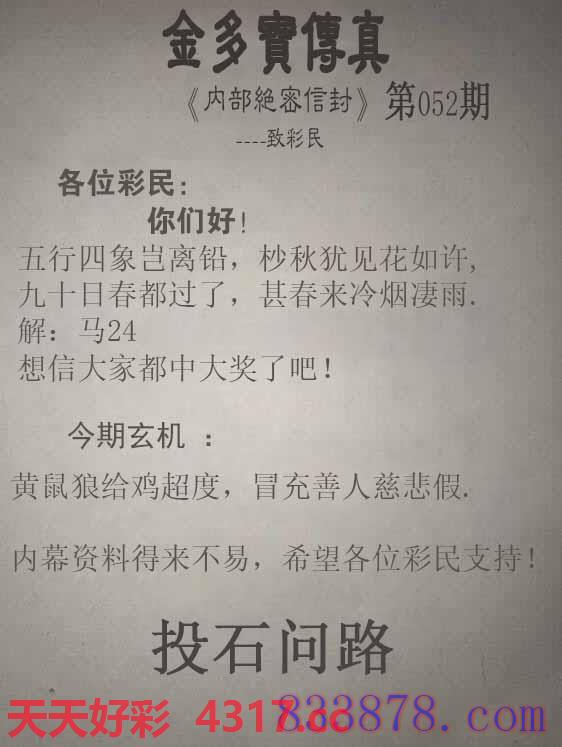 金多寶傳真
《内部絶密信封》第052期
----致彩民
各位彩民:
你们好!
五行四象岂离铅，杪秋犹见花如许,
九十日春都过了，甚春来冷烟凄雨.
解：马24
想信大家都中大奖了吧!
今期玄机 ：
黄鼠狼给鸡超度，冒充善人慈悲假.
内幕资料得来不易，希望各位彩民支持!
投石问路
天天好彩 4317.cc 833878.com